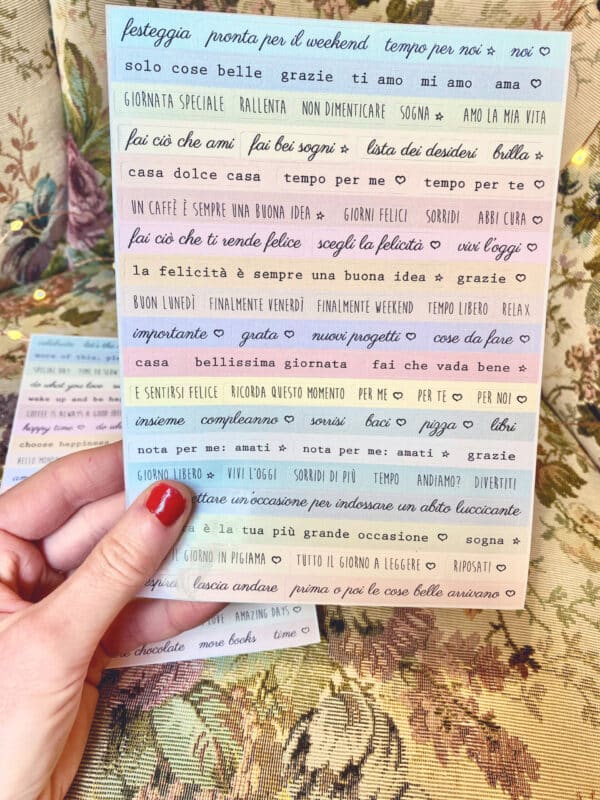 festeggia pronta per il weekend tempo per noi ☆ noi ♡
solo cose belle grazie ti amo mi amo ama ♡
GIORNATA SPECIALE RALLENTA NON DIMENTICARE SOGNA ★ AMO LA MIA VITA
fai ciò che ami fai bei sogni ☆ lista dei desideri brilla ☆
casa dolce casa tempo per me ♡ tempo per te ♡
UN CAFFÈ È SEMPRE UNA BUONA IDEA ★ GIORNI FELICI SORRIDI ABBI CURA ♡
fai ciò che ti rende felice scegli la felicità ♡ vivi l'oggi ♡
la felicità è sempre una buona idea ★ grazie ♡
BUON LUNEDÌ FINALMENTE VENERDÌ FINALMENTE WEEKEND TEMPO LIBERO RELAX
importante ♡ grata ♡ nuovi progetti ♡ cose da fare ♡
casa bellissima giornata fai che vada bene ★
E SENTIRSI FELICE RICORDA QUESTO MOMENTO PER ME ♡ PER TE ♡ PER NOI ♡
insieme compleanno ♡ sorrisi baci ♡ pizza ♡ libri
nota per me: amati ★ nota per me: amati ★ grazie
GIORNO LIBERO ★ VIVI L'OGGI SORRIDI DI PIÙ TEMPO ANDIAMO? DIVERTITI
ettare un'occasione per indossare un abito luccicante
è la tua più grande occasione ♡ sogna ★
IL GIORNO IN PIGIAMA ♡ TUTTO IL GIORNO A LEGGERE ♡ RIPOSATI ♡
spira lascia andare prima o poi le cose belle arrivano ♡
celebrate let's the
more of this,
SPECIAL DAY TIME TO SLOW
do what you love
wake up and be
COFFEE IS ALWAYS A GOOD
happy time ♡ do
choose happiness
LOVE AMAZING DAYS ♡
chocolate more books time ♡